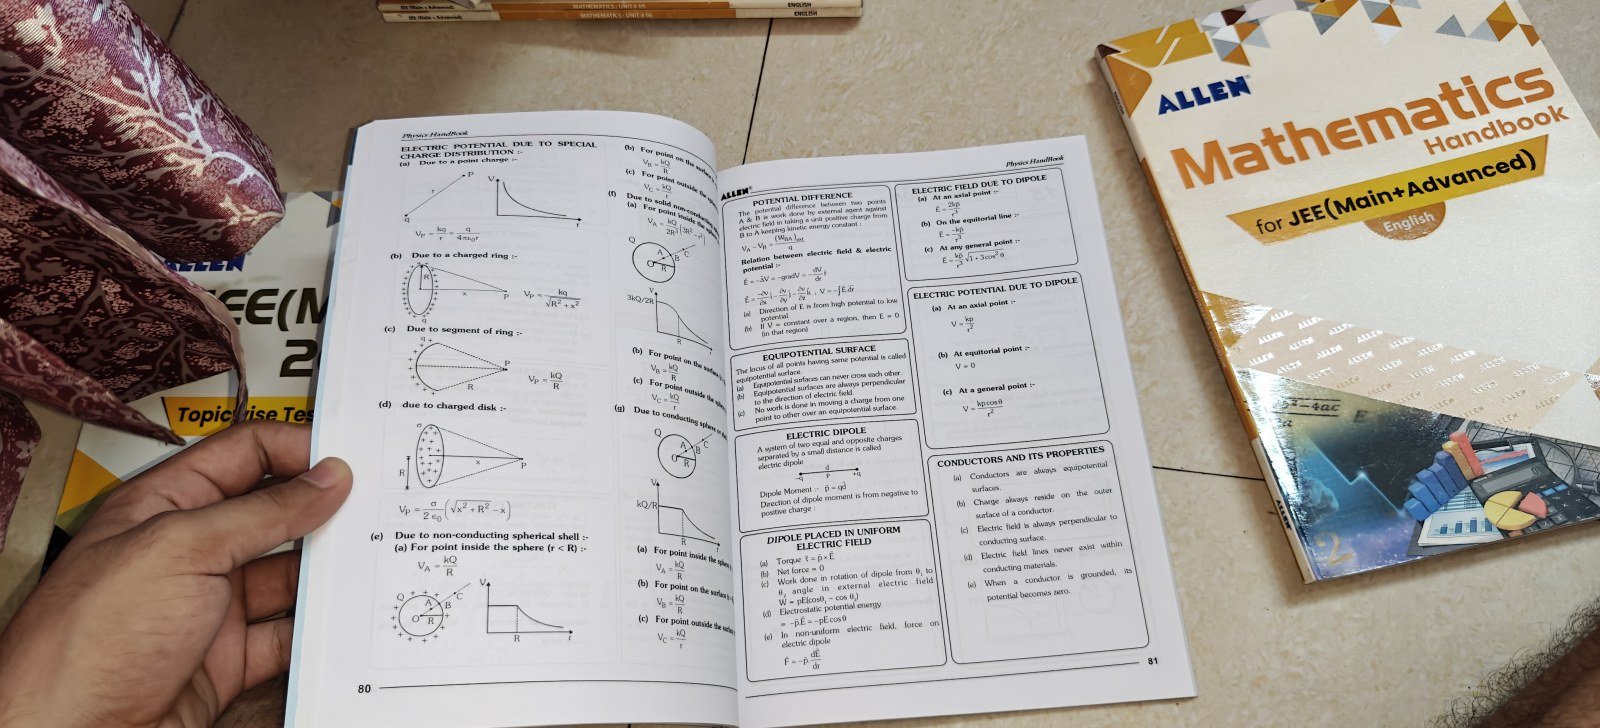 JEE (Main + Advanced)
MATHEMATICS : UNIT # 05
ENGLISH
JEE (Main + Advanced)
MATHEMATICS : UNIT # 04
ENGLISH
ALLEN
JEE(M
2
Topicwise Tes
Physics HandBook
ELECTRIC POTENTIAL DUE TO SPECIAL
CHARGE DISTRIBUTION :-
(a) Due to a point charge :-
r
P
q
V
r
V_P = kq/r = q/4πε₀r
(b) Due to a charged ring :-
R
x
P
q
V_P = kq/√(R² + x²)
(c) Due to segment of ring :-
q
P
R
V_P = kQ/R
(d) due to charged disk :-
σ
R
x
P
V_P = σ/2ε₀ (√(x² + R²) − x)
(e) Due to non-conducting spherical shell :-
(a) For point inside the sphere (r < R) :-
V_A = kQ/R
Q
A
B
C
O
R
V
R
r
80
(b) For point on the surface
V_B = kQ/R
(c) For point outside the
V_C = kQ/r
(f) Due to solid non-conducting
(a) For point inside the
V_A = kQ/2R³ [3R² − r²]
Q
A
B
C
O
R
V
3kQ/2R
R
r
(b) For point on the
V_B = kQ/R
(c) For point outside the
V_C = kQ/r
(g) Due to conducting sphere or
Q
A
B
C
O
R
V
kQ/R
R
r
(a) For point inside the sphere
V_A = kQ/R
(b) For point on the surface
V_B = kQ/R
(c) For point outside the
V_C = kQ/r
ALLEN
Physics HandBook
POTENTIAL DIFFERENCE
The potential difference between two points
A & B is work done by external agent against
electric field in taking a unit positive charge from
B to A keeping kinetic energy constant :
V_A − V_B = (W_BA)ext/q
Relation between electric field & electric
potential :-
E = −∆V = −gradV = −dV/dr r̂
E = −∂v/∂x i − ∂v/∂y j − ∂v/∂z k ; V = −∫E.dr
(a) Direction of E is from high potential to low
potential
(b) If V = constant over a region, then E = 0
(in that region)
EQUIPOTENTIAL SURFACE
The locus of all points having same potential is called
equipotential surface.
(a) Equipotential surfaces can never cross each other
(b) Equipotential surfaces are always perpendicular
to the direction of electric field
(c) No work is done in moving a charge from one
point to other over an equipotential surface.
ELECTRIC DIPOLE
A system of two equal and opposite charges
separated by a small distance is called
electric dipole
d
-q
P
+q
Dipole Moment :- p⃗ = qd⃗
Direction of dipole moment is from negative to
positive charge :
DIPOLE PLACED IN UNIFORM
ELECTRIC FIELD
(a) Torque τ⃗ = p⃗ × E⃗
(b) Net force = 0
(c) Work done in rotation of dipole from θ₁ to
θ₂ angle in external electric field
W = pE(cosθ₁ − cos θ₂)
(d) Electrostatic potential energy
= −p⃗.E⃗ = −pE cosθ
(e) In non-uniform electric field, force on
electric dipole
F⃗ = −p⃗. dE⃗/dr
ELECTRIC FIELD DUE TO DIPOLE
(a) At an axial point :-
E = 2kp/r³
(b) On the equitorial line :-
E = −kp/r³
(c) At any general point :-
E = kp/r³ √(1 + 3cos² θ)
ELECTRIC POTENTIAL DUE TO DIPOLE
(a) At an axial point :-
V = kp/r²
(b) At equitorial point :-
V = 0
(c) At a general point :-
V = kp cos θ/r²
CONDUCTORS AND ITS PROPERTIES
(a) Conductors are always equipotential
surfaces.
(b) Charge always reside on the outer
surface of a conductor.
(c) Electric field is always perpendicular to
conducting surface.
(d) Electric field lines never exist within
conducting materials.
(e) When a conductor is grounded, its
potential becomes zero.
81
ALLEN
Mathematics
Handbook
for JEE(Main+Advanced)
English
ALLEN